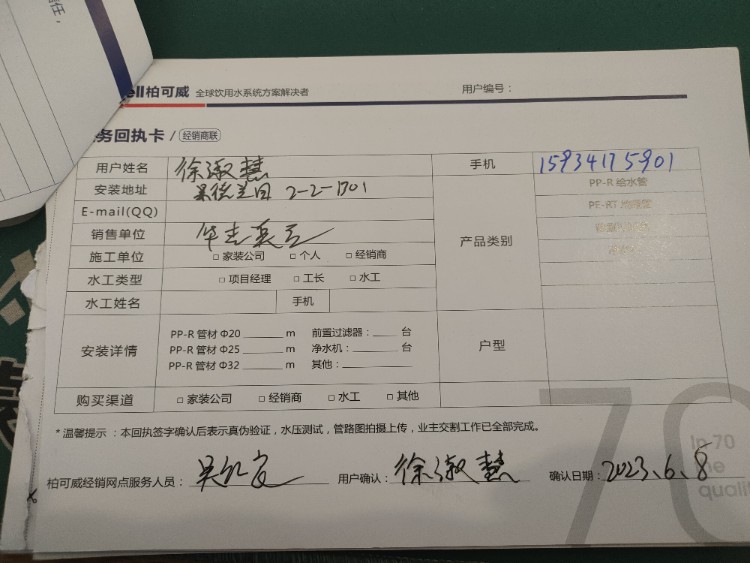 任,
ell柏可威 全球饮用水系统方案解决者 用户编号：
务回执卡 / 经销商联
用户姓名 徐淑慧 手机 15934175901
安装地址 2-2-1701 PP-R 给水管
E-mail(QQ) PE-RT 地暖管
销售单位 产品类别
施工单位 □ 家装公司 □ 个人 □ 经销商
水工类型 □ 项目经理 □ 工长 □ 水工
水工姓名 手机
安装详情 户型
PP-R 管材 Φ20 ______ m 前置过滤器：____ 台
PP-R 管材 Φ25 ______ m 净水机：____ 台
PP-R 管材 Φ32 ______ m 其他：______
购买渠道 □ 家装公司 □ 经销商 □ 水工 □ 其他
* 温馨提示：本回执签字确认后表示真伪验证，水压测试，管路图拍摄上传，业主交割工作已全部完成。
70
In 70
the
quali
柏可威经销网点服务人员： 用户确认：徐淑慧 确认日期：2023.6.8